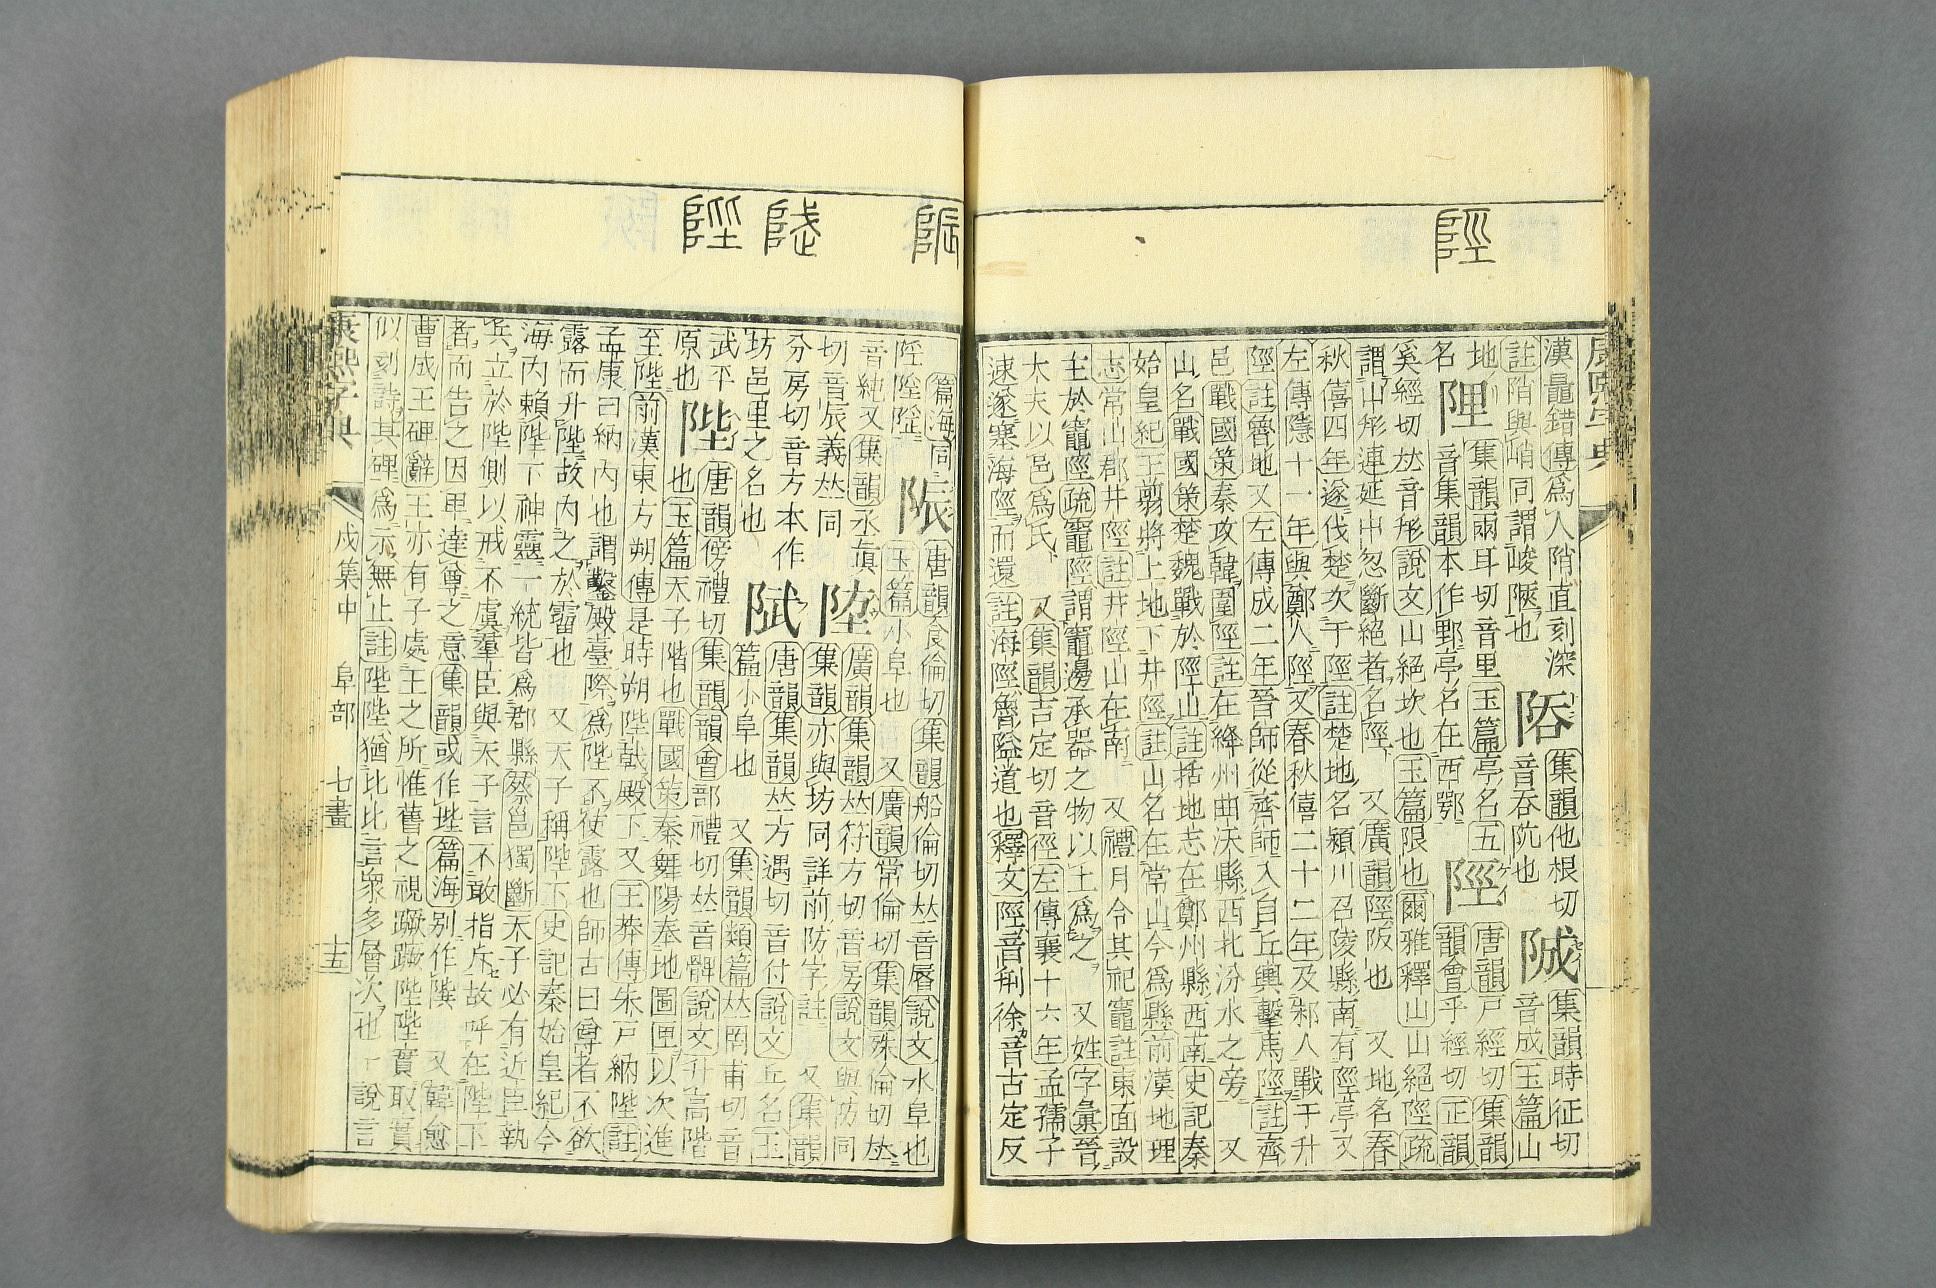 陘
漢鼂錯傳爲人陗直刻深
註陗與峭同謂峻陿也
𨹛
集韻他根切
音吞阬也
䧕
集韻時征切
音成玉篇山
地名
集韻兩耳切音里玉篇亭名五
音集韻本作野亭名在西鄂
陘
唐韻戸經切集韻
韻會乎經切正韻
奚經切𠀤音形說文山絕坎也玉篇限也爾雅釋山山絕陘疏
謂山形連延中忽斷絕者名陘又廣韻陘阪也 又地名春
秋僖四年遂伐楚次于陘註楚地名潁川召陵縣南有陘亭又
左傳隱十一年與鄭人陘又春秋僖二十二年及邾人戰于升
陘註魯地又左傳成二年晉師從齊師入自丘輿擊馬陘註齊
邑戰國策秦攻韓圍陘註在絳州曲沃縣西北汾水之旁 又
山名戰國策楚魏戰於陘山註括地志在鄭州縣西南史記秦
始皇紀王翦將上地下井陘註山名在常山今爲縣前漢地理
志常山郡井陘註井陘山在南 又禮月令其祀竈註東面設
主於竈陘疏竈陘謂竈邊承器之物以土爲之 又姓字彙晉
大夫以邑爲氏 又集韻吉定切音徑左傳襄十六年孟孺子
速遂塞海陘而還註海陘魯隘道也釋文陘音刑徐音古定反
陙
唐韻食倫切集韻船倫切𠀤音脣說文水阜也
玉篇小阜也 又廣韻常倫切集韻殊倫切𠀤
音純又集韻丞眞
切音辰義𠀤同
廣韻集韻𠀤符方切音房說文與防同
集韻亦與坊同詳前防字註 又集韻
分房切音方本作
坊邑里之名也
唐韻集韻𠀤方遇切音付說文丘名玉
篇小阜也 又集韻類篇𠀤罔甫切音
武平
原也
陛
唐韻傍禮切集韻韻會部禮切𠀤音髀說文升高階
也玉篇天子階也戰國策秦舞陽奉地圖匣以次進
至陛前漢東方朔傳是時朔陛戟殿下又王莽傳朱戸納陛註
孟康曰納內也謂鑿殿臺際爲陛不使露也師古曰尊者不欲
露而升陛故內之於霤也 又天子稱陛下史記秦始皇紀今
海內賴陛下神靈一統皆爲郡縣蔡邕獨斷天子必有近臣執
兵立於陛側以戒不虞羣臣與天子言不敢指斥故呼在陛下
者而告之因𤰞達尊之意集韻或作坒篇海別作䧙 又韓愈
曹成王碑辭王亦有子處王之所惟舊之視蹶蹶陛陛實取實
似刻詩其碑爲示無止註陛陛猶比比言衆多層次也 說言
康熙字典
戌集中 阜部 七畫 十五